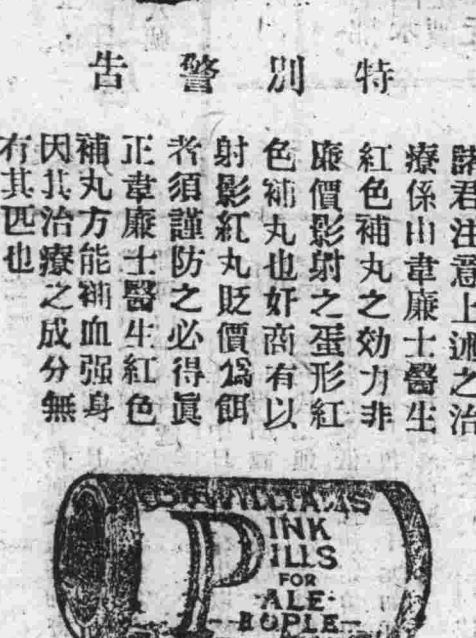 特別警告
諸君注意上述之治
療係由韋廉士醫生
紅色補丸之効力非
廉價影射之蛋形紅
色補丸也奸商有以
射影紅丸貶價爲餌
者須謹防之必得眞
正韋廉士醫生紅色
補丸方能補血强身
因其治療之成分無
有其匹也
WILLIAMS
PINK
PILLS
FOR
PALE
PEOPLE